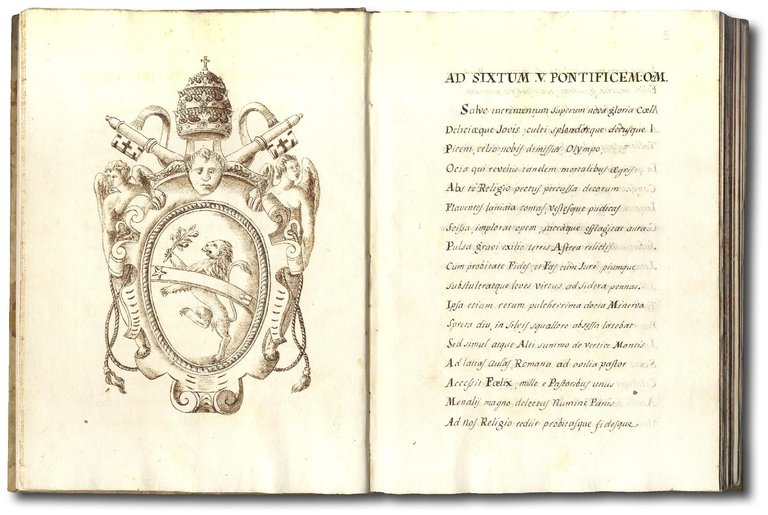 3
AD SIXTUM V. PONTIFICEM:O:M.
Salve incrementum Superum nova gloria Cœli
Deliciæque Jovis, culti splendorque decusque
Picem, celso nobis demissus Olympo,
Ocia qui revehis tandem mortalibus ægris
Abs te Religio pectus percussa decorum
Flaventes laniata comas, vestesque pudicas
Scissa, implorat opem, sacraque efflagitat aura
Pulsa gravi exilio terris Astrea relictis
Cum probitate Fides, et Fas, cum Jure, piumque
Substuleratque leves Virtus ad Sidera pennas.
Ipsa etiam rerum pulcherrima docta Minerva
Spreta diu, in Silvis squallore obsessa latebat
Sed simul atque Alti summo de vertice Montis
Ad latias Aulas, Romana ad ovilia pastor
Accessit Fœlix, mille e Pastoribus unus
Menalij magno delectus Numine Panis
Ad nos Religio redijt probitasque fidesque.